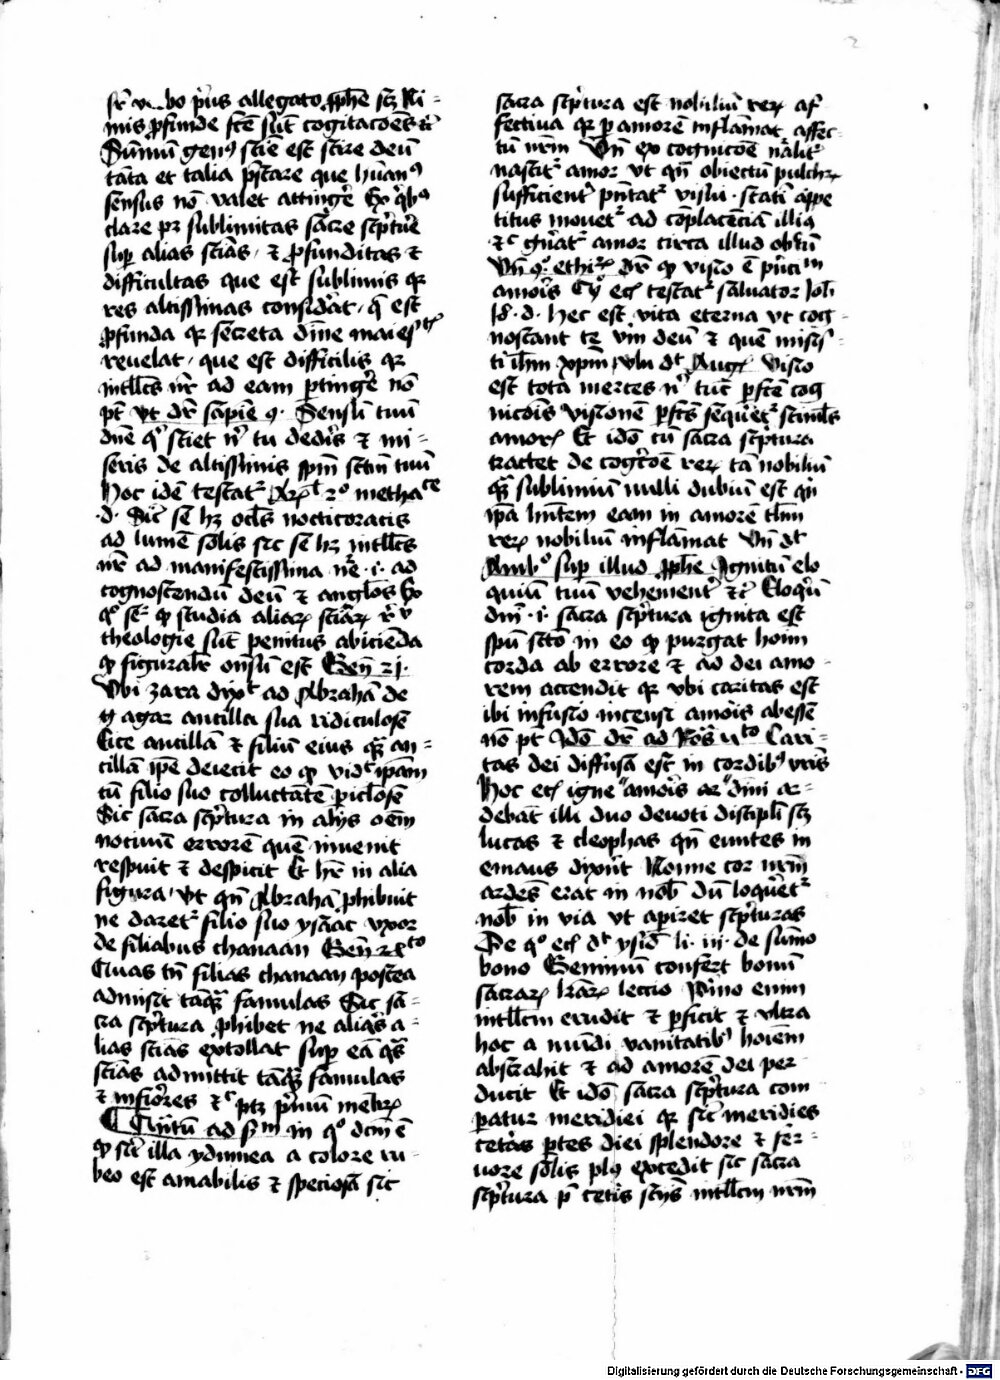 bo pͥus allegato ꝓphē scꝫ Ni-
mis ꝓfunde fcē sūt cogitacōes
Sūmū genꝰ sciē est scire deū
tāta et talia pͥstare que hūanꝰ
sensus nō valet attingͤe Ex qͥbꝰ
clare pꝫ sublimitas sacre scptͥͤe
suꝑ alias sciās / ⁊ ꝓfunditas ⁊
difficultas que est sublimis qꝛ
res altissimas considͤat / q̄ est
ꝓfunda qꝛ secreta diīne maiesᵗꝭ
reuelat / que est difficilis qꝛ
intllͨs nr̄ ad eam ꝑtingͤe nō
pt̄ vt dr̄ sapiē 9. Sensū tuū
dnē qͥs sciet nͥ tu dedͥis ⁊ mi-
seris de altissimis spm̄ sctm̄ tuū
hoc idē testatͬ Arͭ 2º methaᶜᵉ
.d. Sic̄ se hꝫ oclͨs nocticoratis
ad lumē solis sic se hꝫ intllͨs
nr̄ ad manifestissima nͤe .i. ad
cognoscendū deū ⁊ anglōs Ex
qº seͬ ꝙ studia aliaꝝ sciāꝝ
theologie sūt penitus abicieda
ꝙ figuralr̄ onsū est Geñ 21.
Vbi zara dixͭ ad Abrahā de
agar ancilla sua ridiculosē
Eice ancillā ⁊ filiū eius qͣ an-
cillā ipē deiecit eo ꝙ vidͭ ipam
cū filio suo colluctātē ꝑiclosē
Sic sacra scptͥura in alijs oēm
nociuū errorē quē inuenit
respuit ⁊ despicit Et hr̄ in alia
figura / vt qn̄ Abrahā ꝓhibuit
ne daretͬ filio suo ysaac vxor
de filiabus chanaan Geñ 24ᵗᵒ
Quas tn̄ filias chanaan postea
admisit tāqͣ famulas Sic sa-
cra scptͥura ꝓhibet ne aliqͥs a-
lias sciās extollat suꝑ eā qͣs
sciās admittit tāqͣ famulas
⁊ inferͥores ⁊ᶜ ptꝫ pͥmū
Quātū ad sᵐ in qº dcm̄ ē
ꝙ sic̄ illa ydumea a colore ru-
beo est amabilis ⁊ speciosa sic
sacra scptͥura est nobiliū reꝝ af
fectiua qꝛ ꝑ amorē inflāmat affec-
tū nrm̄ Vn̄ ex cognicōe nālitͬ
nascitͬ amor vt qn̄ obiectū pulchꝝ
sufficientͬ pn̄tatͬ visui. statī appe
titus mouetͬ ad cōplacēciā illiꝰ
⁊ᶜ gn̄atͬ amor circa illud
Vn̄ 9º ethiꝝ dr̄ ꝙ visio ē pͥnciᵐ
amoͥs Qͦ ecͥ testatͬ saluator Joh̄
18. d. hec est vita eterna vt cog
noscant te vm̄ deū ⁊ quē misis-
ti ihm̄ xpm̄ vbi dͭ Augꝰ visio
est tota merces nͣ tūc ꝑfcē cog
nicōis visionē ꝑfcs seqͤutͬ
amorꝭ Et idō cū sacra scptͥura
tractet de cogͨcōe reꝝ tā nobiliū
qͣ sublimiū nulli dubiū est qn̄
ipa hntem eam in amorē tlm̄
reꝝ nobiliū inflāmat Vn̄ dͭ
Ambº suꝑ illud ꝓphē Ignitū elo
quiū tuū vehementͬ ⁊ᶜ Eloqͥū
dnī .i. sacra scptͥura ignita est
spū sctō in eo ꝙ purgat hoīm
corda ab errore ⁊ ad dei amo-
rem accendit qꝛ vbi caritas est
ibi infusio incensi amoͥs abessē
nō pt̄ Idō dr̄ ad Roͣ vᵗᵒ Cari-
tas dei diffusa est in cordibꝰ vrīs
Hoc ecͥ igne amoͥs diuini ar-
debāt illi duo deuoti discipli scꝫ
lucas ⁊ cleophas qn̄ euntes in
emaus dixͤūt Nonne cor nrm̄
ardēs erat in nobͥ dū loqͤretͬ
nobͥ in via vt apiret scptͥuras
De qº ecͥ dͭ ysidͥ li. iii. de sūmo
bono Geminū confert bonū
sacraꝝ lrāꝝ leccio Pͥmo enim
intllm̄ erudit ⁊ ꝑficit ⁊ vltra
hoc a mūdi vanitatibꝰ hoīem
abstrahit ⁊ ad amorē dei per-
ducit Et idō sacra scptͥura com
ꝑatur meridiei qꝛ sic̄ meridies
ceteͣs ꝑtes diei splendore ⁊ fer-
uore solis plꝰ excedit sic sacra
scptͥura p̄ ceteͥs sciīs intllm̄ nrm̄
Digitalisierung gefördert durch die Deutsche Forschungsgemeinschaft - DFG